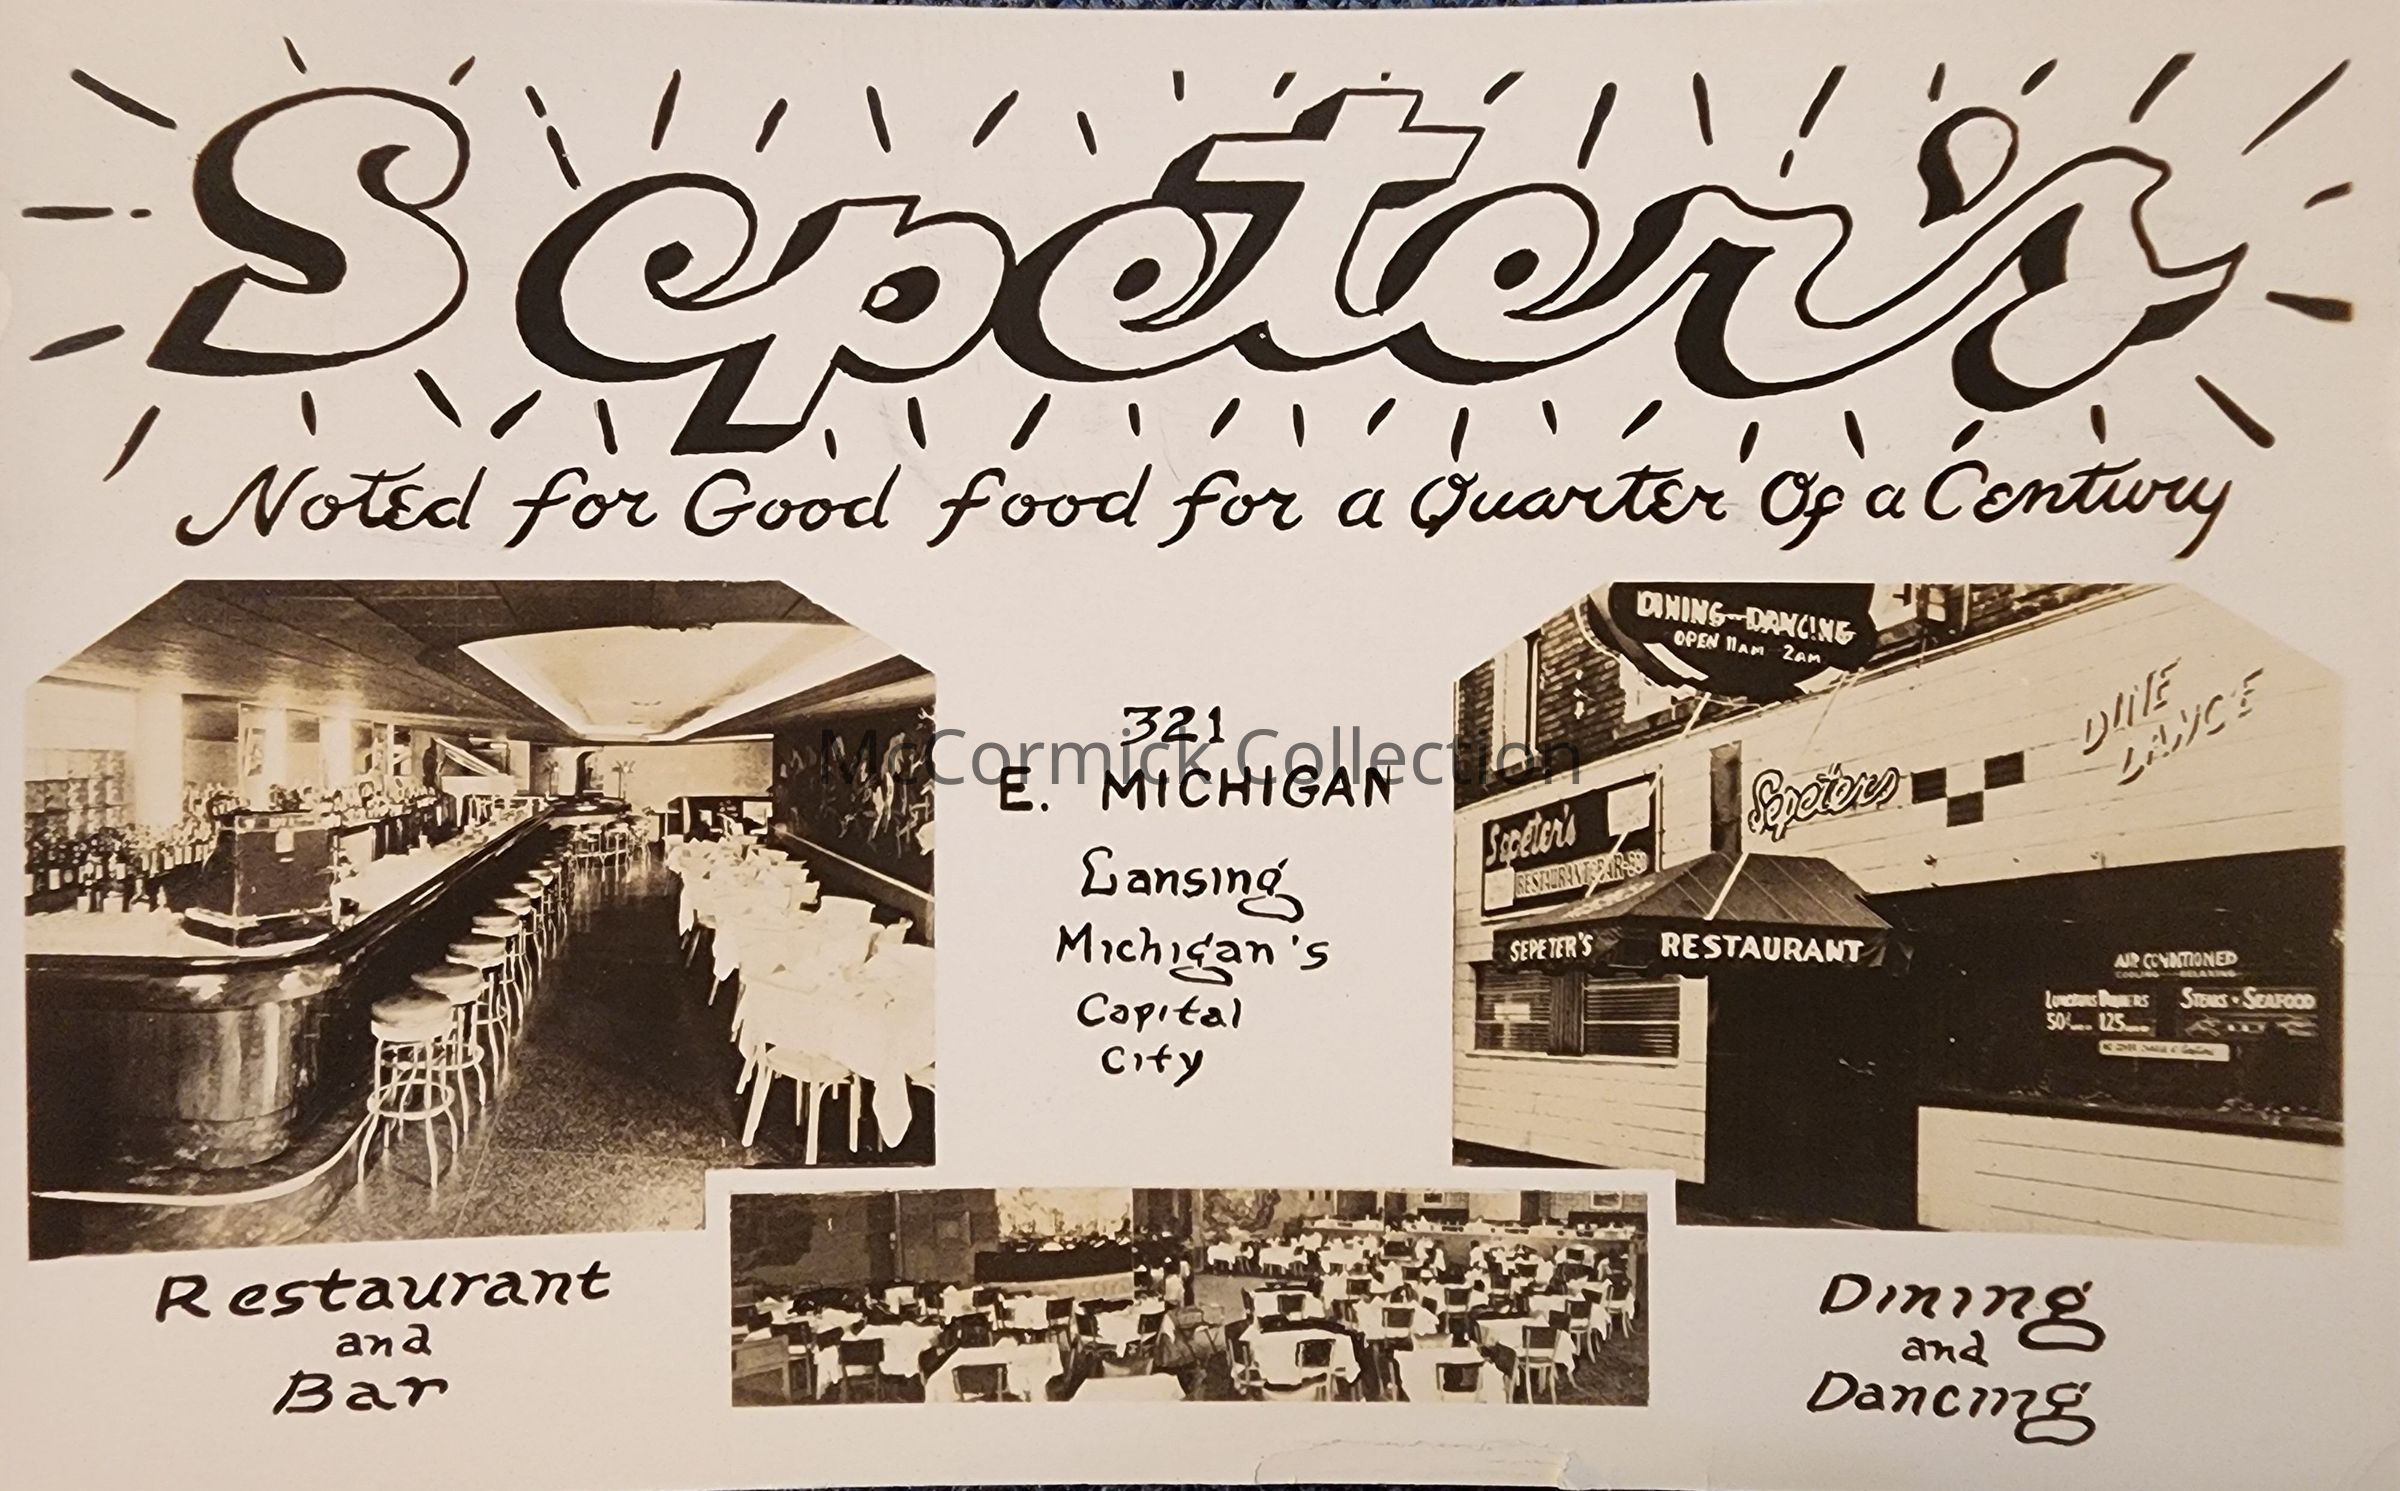 Sepeter's
Noted for Good food for a Quarter Of a Century
321
E. MICHIGAN
Lansing
Michigan's
Capital
City
McCormick Collection
DINING-DANCING
OPEN 11AM 2AM
DINE
DANCE
Sepeters
Sepeter's
RESTAURANT
SEPETER'S RESTAURANT
AIR CONDITIONED
COOLING RELAXING
LUNCHEONS DINNERS
50¢ 125
STEAKS • SEAFOOD
Restaurant
and
Bar
Dining
and
Dancing